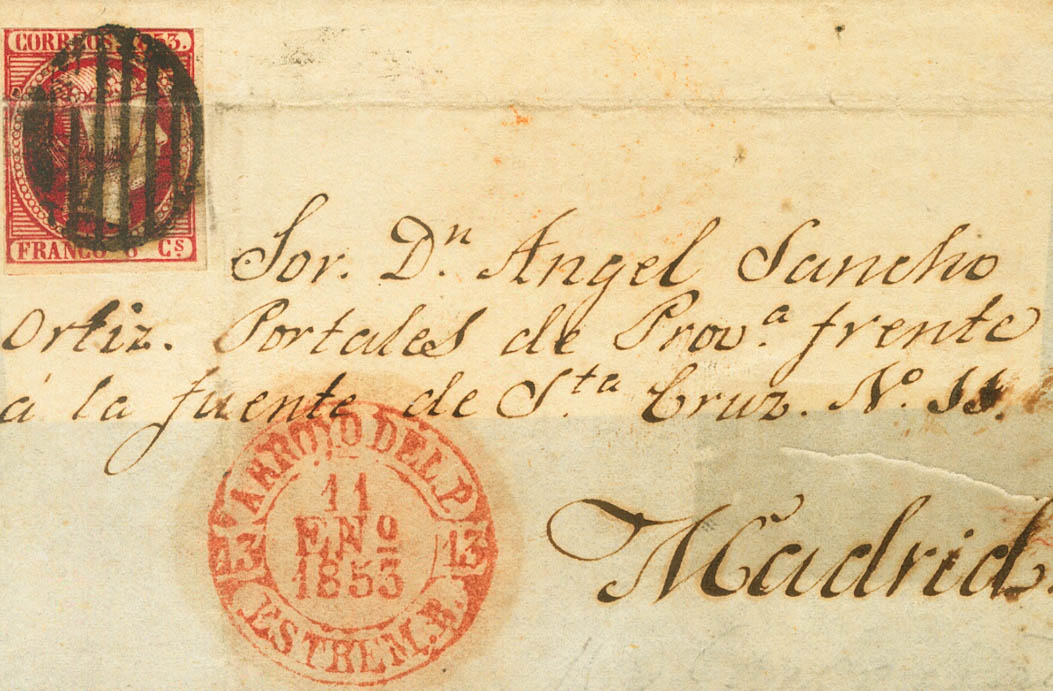 CORREOS 1853.
FRANCO 6 Cs.
Sor. Dn. Angel Sancho
Ortiz. Portales de Prova. frente
á la fuente de Sta. Cruz. No.
Madrid.
ARROYO DEL P.
11
ENo
1853
13 13
ESTREM. B.